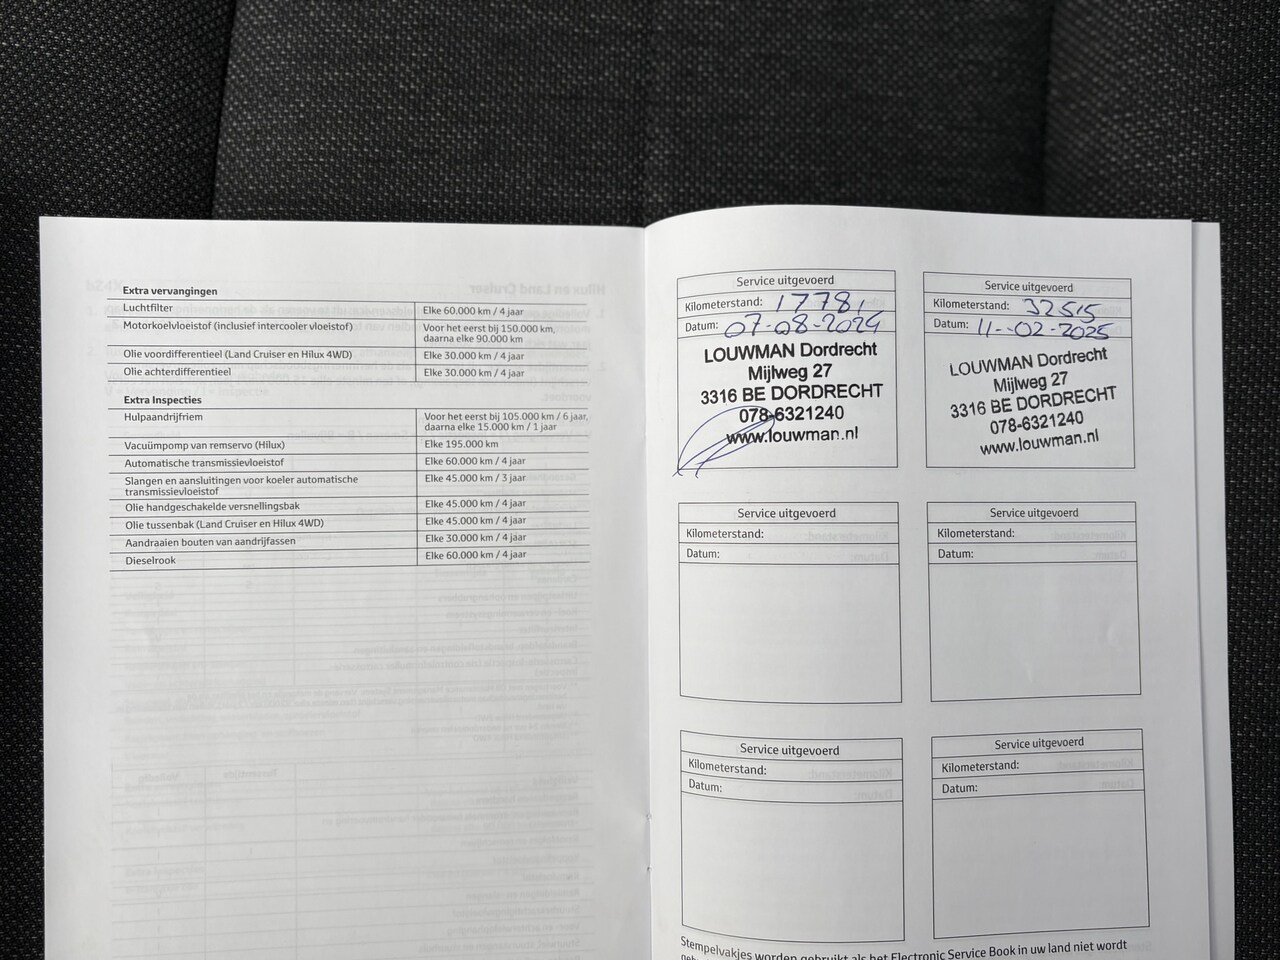 Extra vervangingen
Luchtfilter Elke 60.000 km / 4 jaar
Motorkoelvloeistof (inclusief intercooler vloeistof) Voor het eerst bij 150.000 km,
daarna elke 90.000 km
Olie voordifferentieel (Land Cruiser en Hilux 4WD) Elke 30.000 km / 4 jaar
Olie achterdifferentieel Elke 30.000 km / 4 jaar
Extra Inspecties
Hulpaandrijfriem Voor het eerst bij 105.000 km / 6 jaar,
daarna elke 15.000 km / 1 jaar
Vacuümpomp van remservo (Hilux) Elke 195.000 km
Automatische transmissievloeistof Elke 60.000 km / 4 jaar
Slangen en aansluitingen voor koeler automatische Elke 45.000 km / 3 jaar
transmissievloeistof
Olie handgeschakelde versnellingsbak Elke 45.000 km / 4 jaar
Olie tussenbak (Land Cruiser en Hilux 4WD) Elke 45.000 km / 4 jaar
Aandraaien bouten van aandrijfassen Elke 30.000 km / 4 jaar
Dieselrook Elke 60.000 km / 4 jaar
Service uitgevoerd
Kilometerstand: 17781
Datum: 07-08-2024
LOUWMAN Dordrecht
Mijlweg 27
3316 BE DORDRECHT
078-6321240
www.louwman.nl
Service uitgevoerd
Kilometerstand: 32515
Datum: 11-02-2025
LOUWMAN Dordrecht
Mijlweg 27
3316 BE DORDRECHT
078-6321240
www.louwman.nl
Service uitgevoerd
Kilometerstand:
Datum:
Service uitgevoerd
Kilometerstand:
Datum:
Service uitgevoerd
Kilometerstand:
Datum:
Service uitgevoerd
Kilometerstand:
Datum:
Stempelvakjes worden gebruikt als het Electronic Service Book in uw land niet wordt